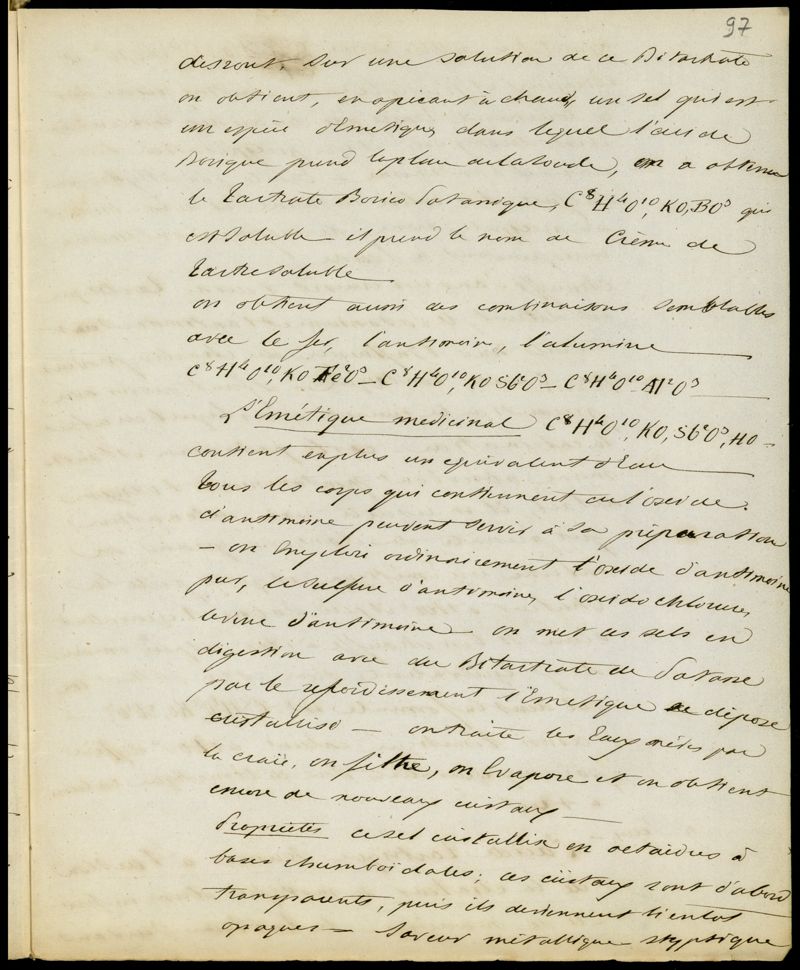 97
dessout. Sur une solution de ce Bitartrate
on obtient, en opérant à chaud, un sel qui est
un espèce d'Emetique, dans lequel l'acide
Borique prend la place de la soude, on a obtenu
le Tartrate Borico Potassique, C⁸H⁴O¹⁰, KO, BO³ qui
est soluble – il prend le nom de Crême de
Tartre soluble
on obtient aussi des combinaisons semblables
avec le fer, l'antimoine, l'alumine
C⁸H⁴O¹⁰, KO Fe²O³ – C⁸H⁴O¹⁰, KO Sb²O³ – C⁸H⁴O¹⁰ Al²O³
L'Emétique medicinal C⁸H⁴O¹⁰, KO, Sb²O³, HO –
contient en plus un equivalent d'Eau
Tous les corps qui contiennent de l'oxide
d'antimoine peuvent servir à sa préparation
– on Emploie ordinairement l'oxide d'antimoine
pur, le sulfure d'antimoine, l'oxido chlorure,
le verre d'antimoine – on met ces sels en
digestion avec du Bitartrate de Potasse
par le refoidissement l'Emetique se dépose
cristallisé – on traite les Eaux mères par
la craie, on filtre, on Evapore et on obtient
encore de nouveaux cristaux –
Propriétés ce sel cristallise en octaèdres à
bases rhumboïdales; ces cristaux sont d'abord
transparents, puis ils deviennent bientot
opaques – Saveur métallique styptique